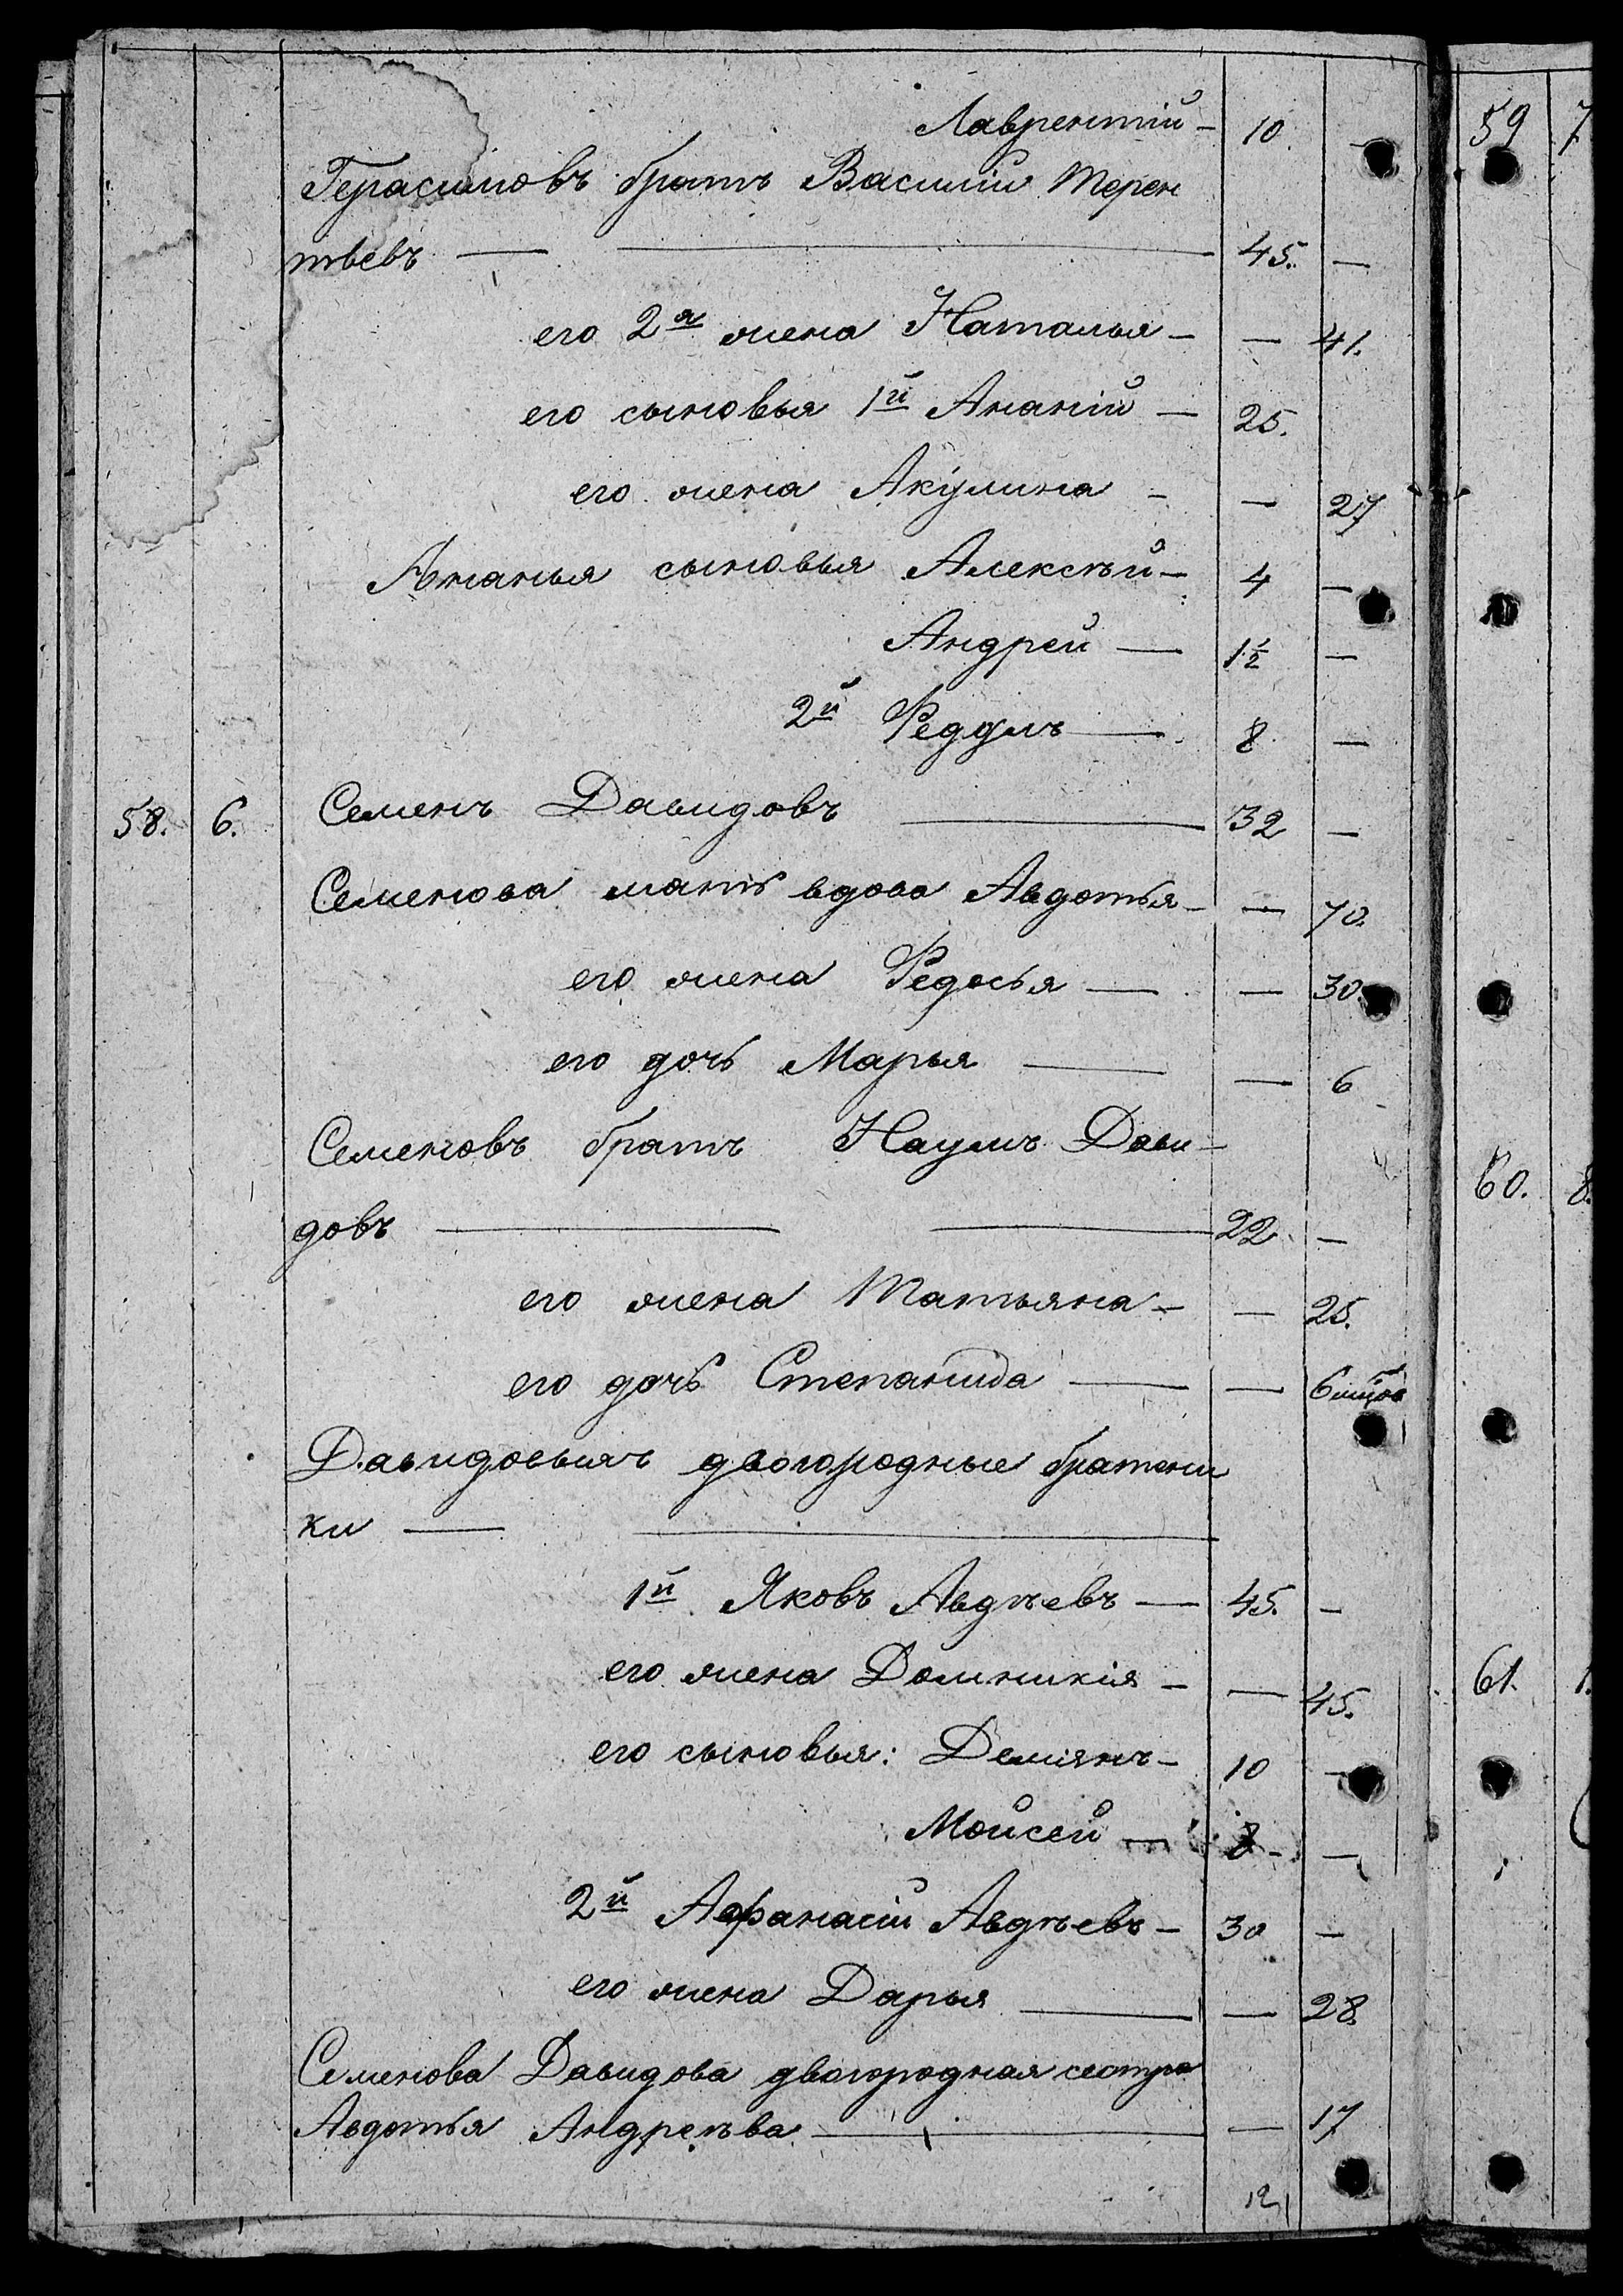 Лаврентій - 10. —
Герасимовъ братъ Василій Терен
тьевъ — 45. —
его 2я жена Наталья - — 41.
его сыновья 1й Ананій - 25.
его жена Акулина - — 27
Ананья сыновья Алексѣй - 4 —
Андрей — 1½ —
2й Федулъ — 8 —
58. 6. Семенъ Давидовъ — 32 —
Семенова мать вдова Авдотья - — 70.
его жена Федосья — — 30.
его дочь Марья — — 6
Семеновъ братъ Наумъ Дави-
довъ — 22. —
его жена Татьяна - — 25.
его дочь Степанида — —
Давидовыхъ двоюродные братени
ки —
1й Яковъ Авдѣевъ — 45. —
его жена Домникія - — 45.
его сыновья: Демянъ - 10 —
Мойсей — 8 - —
2й Афанасій Авдѣевъ - 30 —
его жена Дарья — — 28.
Семенова Давидова двоюродная сестра
Авдотья Андреѣва — — 17
59 7
60. 8.
61. 1.